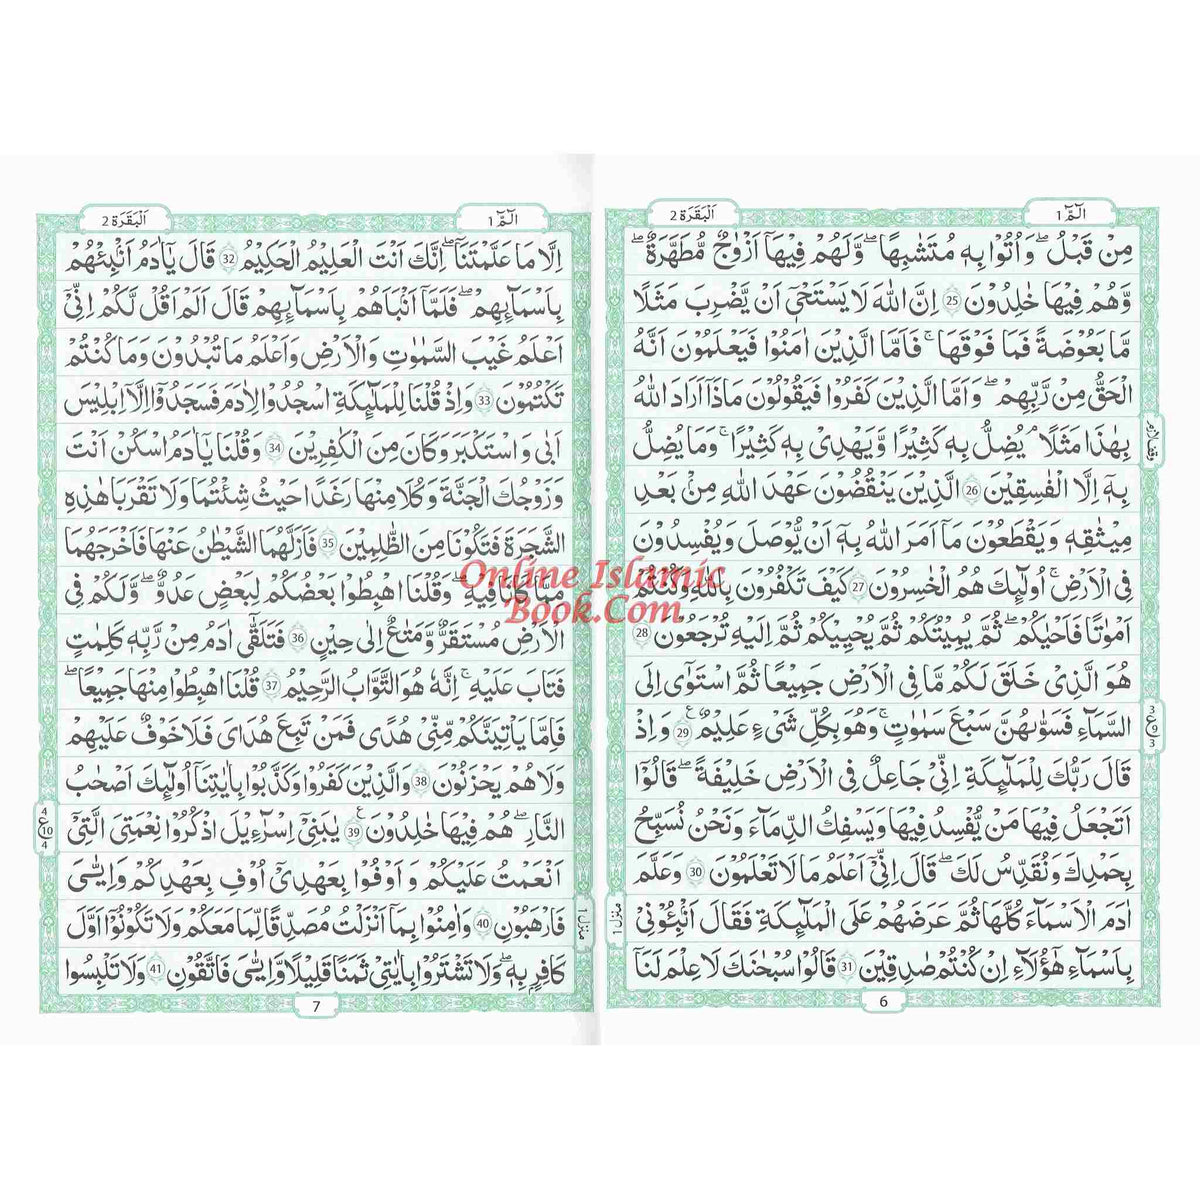 الٓمّٓ 1
اَلْبَقَرَة 2
مِنْ قَبْلُ ۙ وَاُتُوْا بِهٖ مُتَشَابِهًا ؕ وَلَهُمْ فِيْهَاۤ اَزْوَاجٌ مُّطَهَّرَةٌ ۙ
وَّهُمْ فِيْهَا خٰلِدُوْنَ 25 اِنَّ اللّٰهَ لَا يَسْتَحْيٖۤ اَنْ يَّضْرِبَ مَثَلًا
مَّا بَعُوْضَةً فَمَا فَوْقَهَا ؕ فَاَمَّا الَّذِيْنَ اٰمَنُوْا فَيَعْلَمُوْنَ اَنَّهُ
الْحَقُّ مِنْ رَّبِّهِمْ ۚ وَاَمَّا الَّذِيْنَ كَفَرُوْا فَيَقُوْلُوْنَ مَاذَاۤ اَرَادَ اللّٰهُ
بِهٰذَا مَثَلًا ۘ يُضِلُّ بِهٖ كَثِيْرًا وَّيَهْدِىْ بِهٖ كَثِيْرًا ؕ وَمَا يُضِلُّ
بِهٖۤ اِلَّا الْفٰسِقِيْنَ 26 الَّذِيْنَ يَنْقُضُوْنَ عَهْدَ اللّٰهِ مِنْۢ بَعْدِ
مِيْثَاقِهٖ وَيَقْطَعُوْنَ مَاۤ اَمَرَ اللّٰهُ بِهٖۤ اَنْ يُّوْصَلَ وَيُفْسِدُوْنَ
فِى الْاَرْضِ ؕ اُولٰٓئِكَ هُمُ الْخٰسِرُوْنَ 27 كَيْفَ تَكْفُرُوْنَ بِاللّٰهِ وَكُنْتُمْ
اَمْوَاتًا فَاَحْيَاكُمْ ۚ ثُمَّ يُمِيْتُكُمْ ثُمَّ يُحْيِيْكُمْ ثُمَّ اِلَيْهِ تُرْجَعُوْنَ 28
هُوَ الَّذِىْ خَلَقَ لَكُمْ مَّا فِى الْاَرْضِ جَمِيْعًا ثُمَّ اسْتَوٰۤى اِلَى
السَّمَآءِ فَسَوّٰىهُنَّ سَبْعَ سَمٰوٰتٍ ؕ وَهُوَ بِكُلِّ شَىْءٍ عَلِيْمٌ 29 وَاِذْ
قَالَ رَبُّكَ لِلْمَلٰٓئِكَةِ اِنِّىْ جَاعِلٌ فِى الْاَرْضِ خَلِيْفَةً ؕ قَالُوْۤا
اَتَجْعَلُ فِيْهَا مَنْ يُّفْسِدُ فِيْهَا وَيَسْفِكُ الدِّمَآءَ ۚ وَنَحْنُ نُسَبِّحُ
بِحَمْدِكَ وَنُقَدِّسُ لَكَ ؕ قَالَ اِنِّىْۤ اَعْلَمُ مَا لَا تَعْلَمُوْنَ 30 وَعَلَّمَ
اٰدَمَ الْاَسْمَآءَ كُلَّهَا ثُمَّ عَرَضَهُمْ عَلَى الْمَلٰٓئِكَةِ فَقَالَ اَنْۢبِئُوْنِىْ
بِاَسْمَآءِ هٰٓؤُلَآءِ اِنْ كُنْتُمْ صٰدِقِيْنَ 31 قَالُوْا سُبْحٰنَكَ لَا عِلْمَ لَنَاۤ
منزل 1
3
ع
9
3
6
الٓمّٓ 1
اَلْبَقَرَة 2
اِلَّا مَا عَلَّمْتَنَا ؕ اِنَّكَ اَنْتَ الْعَلِيْمُ الْحَكِيْمُ 32 قَالَ يٰۤاٰدَمُ اَنْۢبِئْهُمْ
بِاَسْمَآئِهِمْ ۚ فَلَمَّاۤ اَنْۢبَاَهُمْ بِاَسْمَآئِهِمْ قَالَ اَلَمْ اَقُلْ لَّكُمْ اِنِّىْۤ
اَعْلَمُ غَيْبَ السَّمٰوٰتِ وَالْاَرْضِ وَاَعْلَمُ مَا تُبْدُوْنَ وَمَا كُنْتُمْ
تَكْتُمُوْنَ 33 وَاِذْ قُلْنَا لِلْمَلٰٓئِكَةِ اسْجُدُوْا لِاٰدَمَ فَسَجَدُوْۤا اِلَّاۤ اِبْلِيْسَ
اَبٰى وَاسْتَكْبَرَ وَكَانَ مِنَ الْكٰفِرِيْنَ 34 وَقُلْنَا يٰۤاٰدَمُ اسْكُنْ اَنْتَ
وَزَوْجُكَ الْجَنَّةَ وَكُلَا مِنْهَا رَغَدًا حَيْثُ شِئْتُمَا وَلَا تَقْرَبَا هٰذِهِ
الشَّجَرَةَ فَتَكُوْنَا مِنَ الظّٰلِمِيْنَ 35 فَاَزَلَّهُمَا الشَّيْطٰنُ عَنْهَا فَاَخْرَجَهُمَا
مِمَّا كَانَا فِيْهِ ۪ وَقُلْنَا اهْبِطُوْا بَعْضُكُمْ لِبَعْضٍ عَدُوٌّ ۚ وَلَكُمْ فِى
الْاَرْضِ مُسْتَقَرٌّ وَّمَتَاعٌ اِلٰى حِيْنٍ 36 فَتَلَقّٰۤى اٰدَمُ مِنْ رَّبِّهٖ كَلِمٰتٍ
فَتَابَ عَلَيْهِ ؕ اِنَّهٗ هُوَ التَّوَّابُ الرَّحِيْمُ 37 قُلْنَا اهْبِطُوْا مِنْهَا جَمِيْعًا ۚ
فَاِمَّا يَاْتِيَنَّكُمْ مِّنِّىْ هُدًى فَمَنْ تَبِعَ هُدَاىَ فَلَا خَوْفٌ عَلَيْهِمْ
وَلَا هُمْ يَحْزَنُوْنَ 38 وَالَّذِيْنَ كَفَرُوْا وَكَذَّبُوْا بِاٰيٰتِنَاۤ اُولٰٓئِكَ اَصْحٰبُ
النَّارِ ۚ هُمْ فِيْهَا خٰلِدُوْنَ 39 يٰبَنِىْۤ اِسْرَآءِيْلَ اذْكُرُوْا نِعْمَتِىَ الَّتِىْۤ
اَنْعَمْتُ عَلَيْكُمْ وَاَوْفُوْا بِعَهْدِىْۤ اُوْفِ بِعَهْدِكُمْ وَاِيَّاىَ
فَارْهَبُوْنِ 40 وَاٰمِنُوْا بِمَاۤ اَنْزَلْتُ مُصَدِّقًا لِّمَا مَعَكُمْ وَلَا تَكُوْنُوْۤا اَوَّلَ
كَافِرٍۢ بِهٖ ۪ وَلَا تَشْتَرُوْا بِاٰيٰتِىْ ثَمَنًا قَلِيْلًا وَّاِيَّاىَ فَاتَّقُوْنِ 41 وَلَا تَلْبِسُوا
منزل 1
4
ع
10
4
7
Online Islamic
Book.Com